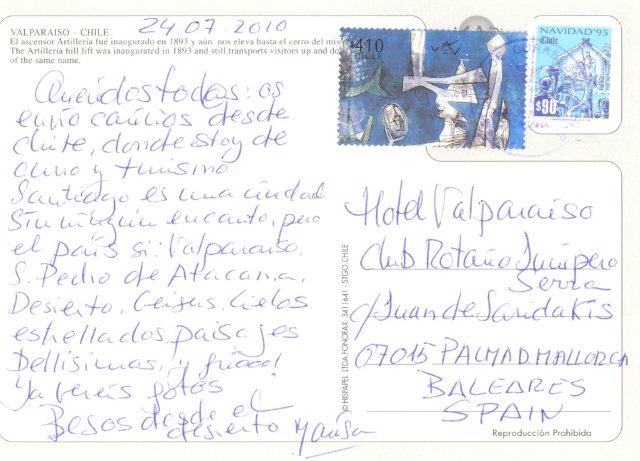 24.07.2010
VALPARAISO - CHILE
El ascensor Artillería fué inaugurado en 1893 y aún nos eleva hasta el cerro del mis
The Artillería hill lift was inaugurated in 1893 and still transports visitors up and do
of the same name.
Queridos todos: os
envío cariños desde
Chile, donde estoy de
curro y turismo.
Santiago es una ciudad
sin ningún encanto, pero
el país sí: Valparaiso,
S. Pedro de Atacama,
Desierto, Geisers, Cielos
estrellados, paisajes
bellísimos, y frío!
Ya vereis fotos
Besos desde el
desierto
$410
CHILE
NAVIDAD'95
Chile
$90
Hotel Valparaiso
Club Rotario Junípero
Serra
c/Juan de Saridakis
07015 PALMA D. MALLORCA
BALEARES
SPAIN
© HISPAPEL LTDA. FONOFAX: 341 641 - STGO. CHILE
Reproducción Prohibida